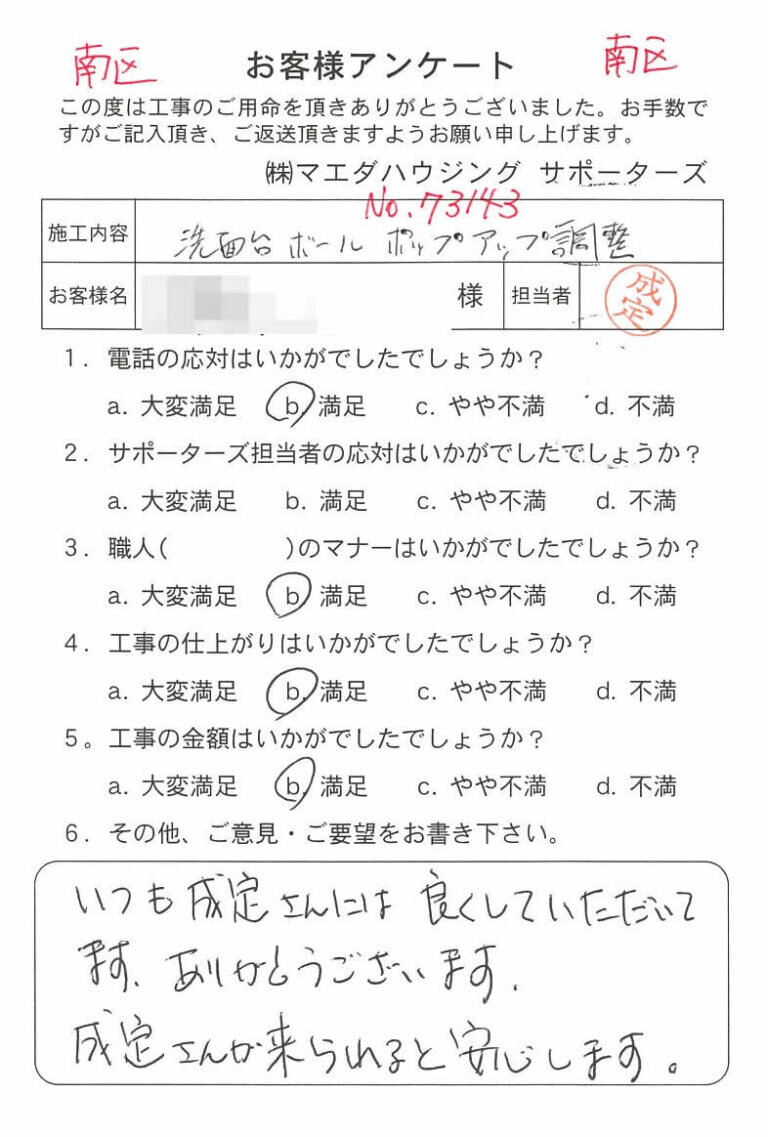 南区 お客様アンケート 南区
この度は工事のご用命を頂きありがとうございました。お手数で
すがご記入頂き、ご返送頂きますようお願い申し上げます。
㈱マエダハウジング サポーターズ
No.73143
施工内容 洗面台ボール ポップアップ調整
お客様名 様 担当者 成定
1. 電話の応対はいかがでしたでしょうか？
a. 大変満足 b. 満足 c. やや不満 d. 不満
2. サポーターズ担当者の応対はいかがでしたでしょうか？
a. 大変満足 b. 満足 c. やや不満 d. 不満
3. 職人( )のマナーはいかがでしたでしょうか？
a. 大変満足 b. 満足 c. やや不満 d. 不満
4. 工事の仕上がりはいかがでしたでしょうか？
a. 大変満足 b. 満足 c. やや不満 d. 不満
5。工事の金額はいかがでしたでしょうか？
a. 大変満足 b. 満足 c. やや不満 d. 不満
6. その他、ご意見・ご要望をお書き下さい。
いつも成定さんには 良くしていただいて
ます、ありがとうございます.
成定さんが来られると安心します。